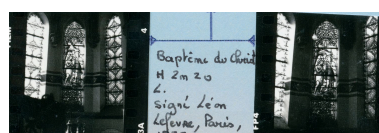 4
Baptême du Christ
H 2m20
L.
signé Léon
Lefevre, Paris,